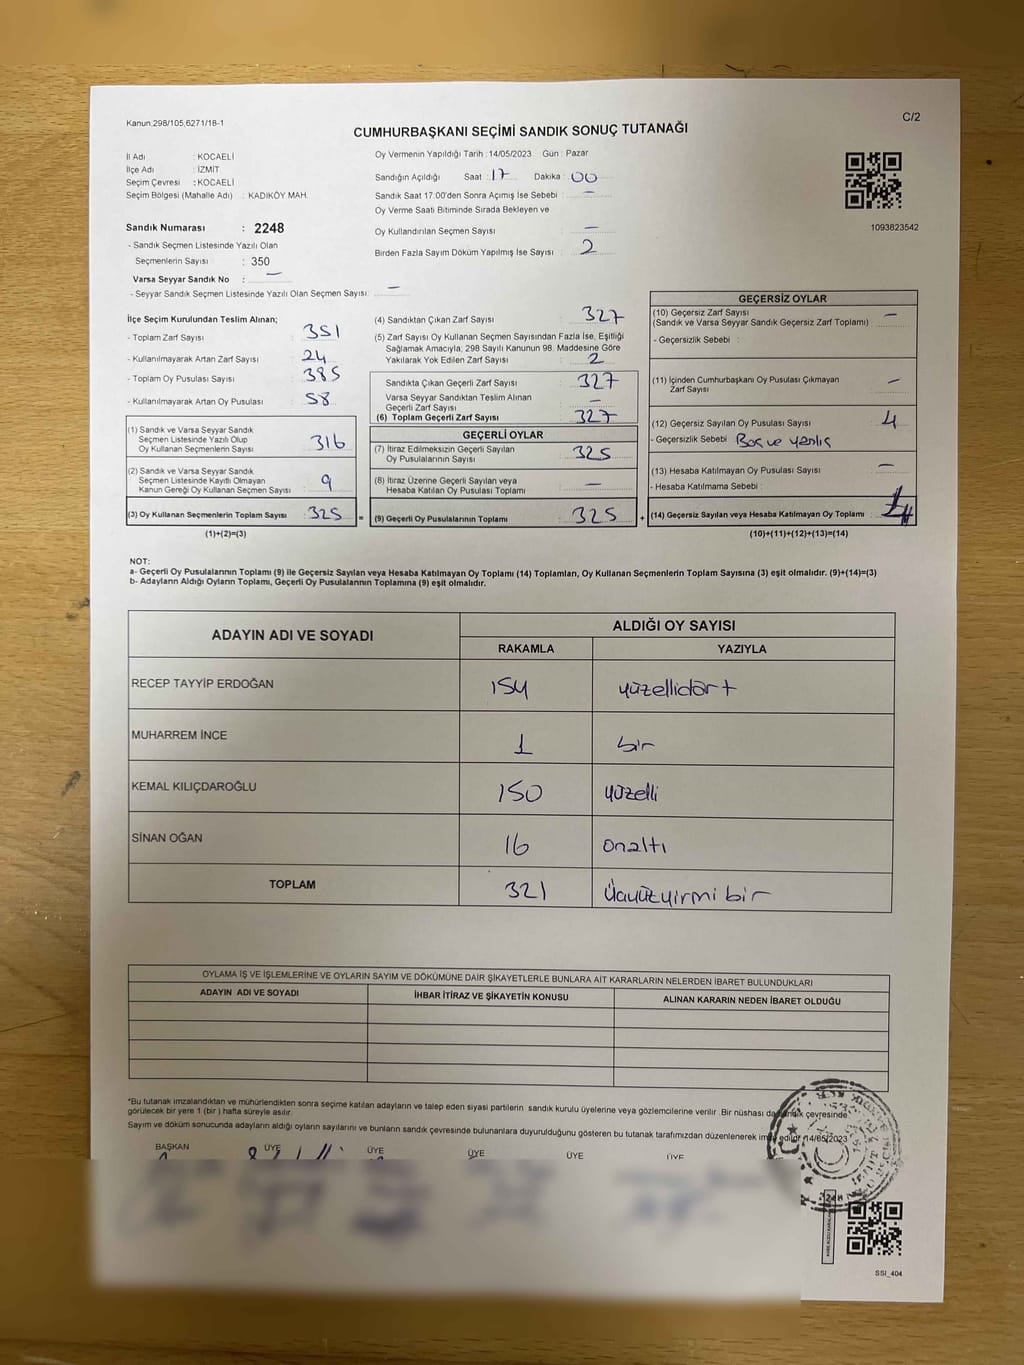 Kanun,298/105,6271/18-1
C/2
CUMHURBAŞKANI SEÇİMİ SANDIK SONUÇ TUTANAĞI
İl Adı : KOCAELİ
İlçe Adı : İZMİT
Seçim Çevresi : KOCAELİ
Seçim Bölgesi (Mahalle Adı) : KADIKÖY MAH.
Oy Vermenin Yapıldığı Tarih : 14/05/2023 Gün : Pazar
Sandığın Açıldığı Saat : 17 Dakika : 00
Sandık Saat 17:00'den Sonra Açımış İse Sebebi : –
Oy Verme Saati Bitiminde Sırada Bekleyen ve
Oy Kullandırılan Seçmen Sayısı : –
Birden Fazla Sayım Döküm Yapılmış İse Sayısı : 2
1093823542
Sandık Numarası : 2248
- Sandık Seçmen Listesinde Yazılı Olan
Seçmenlerin Sayısı : 350
Varsa Seyyar Sandık No : –
- Seyyar Sandık Seçmen Listesinde Yazılı Olan Seçmen Sayısı: –
İlçe Seçim Kurulundan Teslim Alınan;
- Toplam Zarf Sayısı : 351
- Kullanılmayarak Artan Zarf Sayısı : 24
- Toplam Oy Pusulası Sayısı : 385
- Kullanılmayarak Artan Oy Pusulası : 58
(1) Sandık ve Varsa Seyyar Sandık
Seçmen Listesinde Yazılı Olup
Oy Kullanan Seçmenlerin Sayısı : 316
(2) Sandık ve Varsa Seyyar Sandık
Seçmen Listesinde Kayıtlı Olmayan
Kanun Gereği Oy Kullanan Seçmen Sayısı : 9
(3) Oy Kullanan Seçmenlerin Toplam Sayısı : 325 =
(1)+(2)=(3)
(4) Sandıktan Çıkan Zarf Sayısı : 327
(5) Zarf Sayısı Oy Kullanan Seçmen Sayısından Fazla İse, Eşitliği
Sağlamak Amacıyla; 298 Sayılı Kanunun 98. Maddesine Göre
Yakılarak Yok Edilen Zarf Sayısı : 2
Sandıkta Çıkan Geçerli Zarf Sayısı : 327
Varsa Seyyar Sandıktan Teslim Alınan
Geçerli Zarf Sayısı : –
(6) Toplam Geçerli Zarf Sayısı : 327
GEÇERLİ OYLAR
(7) İtiraz Edilmeksizin Geçerli Sayılan
Oy Pusulalarının Sayısı : 325
(8) İtiraz Üzerine Geçerli Sayılan veya
Hesaba Katılan Oy Pusulası Toplamı : –
(9) Geçerli Oy Pusulalarının Toplamı : 325 +
GEÇERSİZ OYLAR
(10) Geçersiz Zarf Sayısı : –
(Sandık ve Varsa Seyyar Sandık Geçersiz Zarf Toplamı)
- Geçersizlik Sebebi :
(11) İçinden Cumhurbaşkanı Oy Pusulası Çıkmayan
Zarf Sayısı : –
(12) Geçersiz Sayılan Oy Pusulası Sayısı : 4
- Geçersizlik Sebebi : Boş ve yanlış
(13) Hesaba Katılmayan Oy Pusulası Sayısı : –
- Hesaba Katılmama Sebebi :
(14) Geçersiz Sayılan veya Hesaba Katılmayan Oy Toplamı :
(10)+(11)+(12)+(13)=(14)
NOT:
a- Geçerli Oy Pusulalarının Toplamı (9) ile Geçersiz Sayılan veya Hesaba Katılmayan Oy Toplamı (14) Toplamları, Oy Kullanan Seçmenlerin Toplam Sayısına (3) eşit olmalıdır. (9)+(14)=(3)
b- Adayların Aldığı Oyların Toplamı, Geçerli Oy Pusulalarının Toplamına (9) eşit olmalıdır.
ADAYIN ADI VE SOYADI
ALDIĞI OY SAYISI
RAKAMLA YAZIYLA
RECEP TAYYİP ERDOĞAN 154 yüzellidört
MUHARREM İNCE 1 bir
KEMAL KILIÇDAROĞLU 150 yüzelli
SİNAN OĞAN 16 onaltı
TOPLAM 321 Üçyüzyirmi bir
OYLAMA İŞ VE İŞLEMLERİNE VE OYLARIN SAYIM VE DÖKÜMÜNE DAİR ŞİKAYETLERLE BUNLARA AİT KARARLARIN NELERDEN İBARET BULUNDUKLARI
ADAYIN ADI VE SOYADI İHBAR İTİRAZ VE ŞİKAYETİN KONUSU ALINAN KARARIN NEDEN İBARET OLDUĞU
*Bu tutanak imzalandıktan ve mühürlendikten sonra seçime katılan adayların ve talep eden siyasi partilerin sandık kurulu üyelerine veya gözlemcilerine verilir .Bir nüshası da sandık çevresinde
görülecek bir yere 1 (bir) hafta süreyle asılır.
Sayım ve döküm sonucunda adayların aldığı oyların sayılarını ve bunların sandık çevresinde bulunanlara duyurulduğunu gösteren bu tutanak tarafımızdan düzenlenerek imza edildi. 14/05/2023
BAŞKAN ÜYE ÜYE ÜYE ÜYE ÜYE
SSI_404